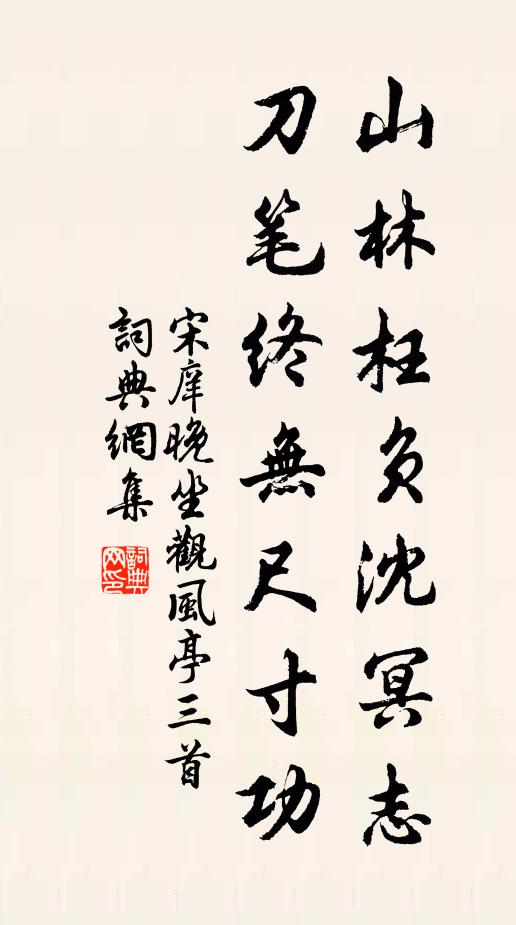 山林枉负沈冥志
刀笔终無尺寸功
宋庠晚坐觀風亭三首
詞典網集
詞典网印